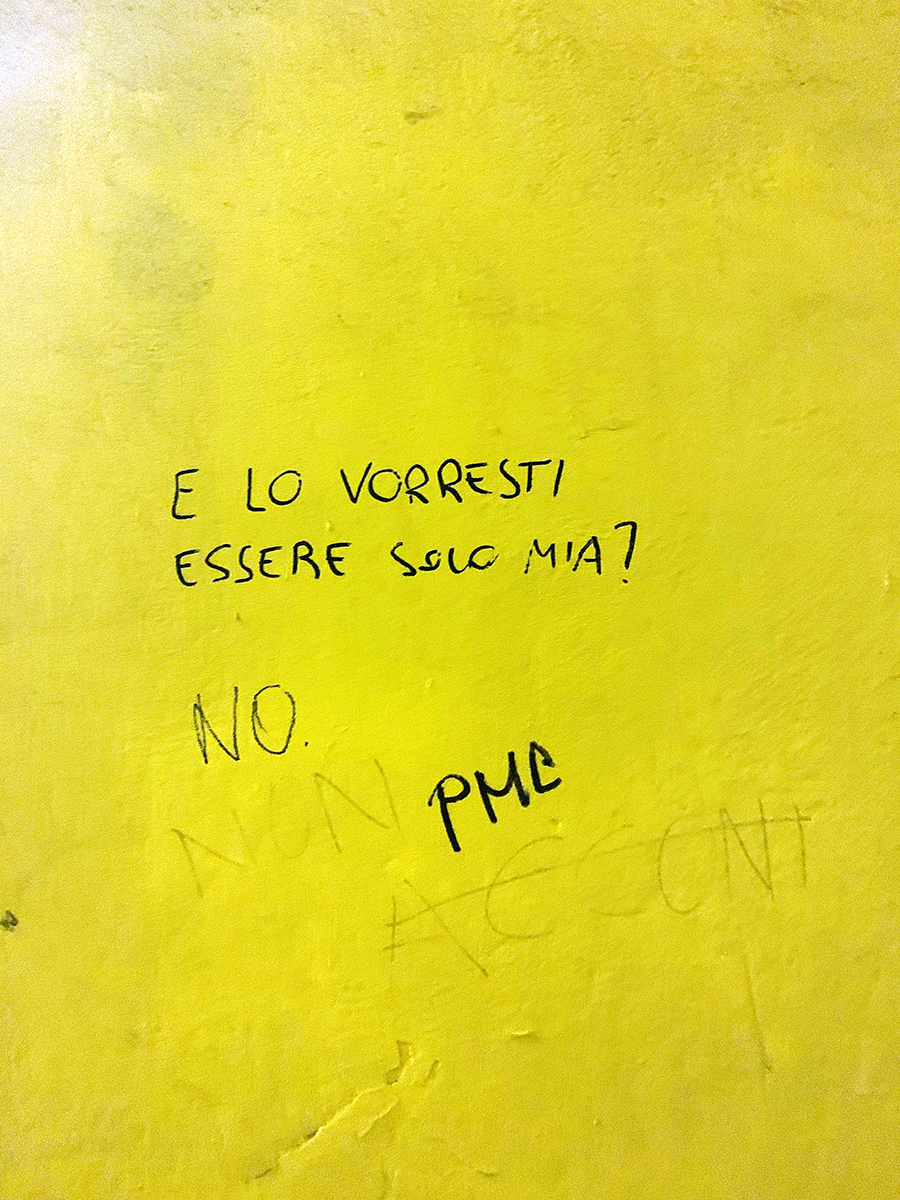 E LO VORRESTI
ESSERE SOLO MIA?
NO.
NON
PMC